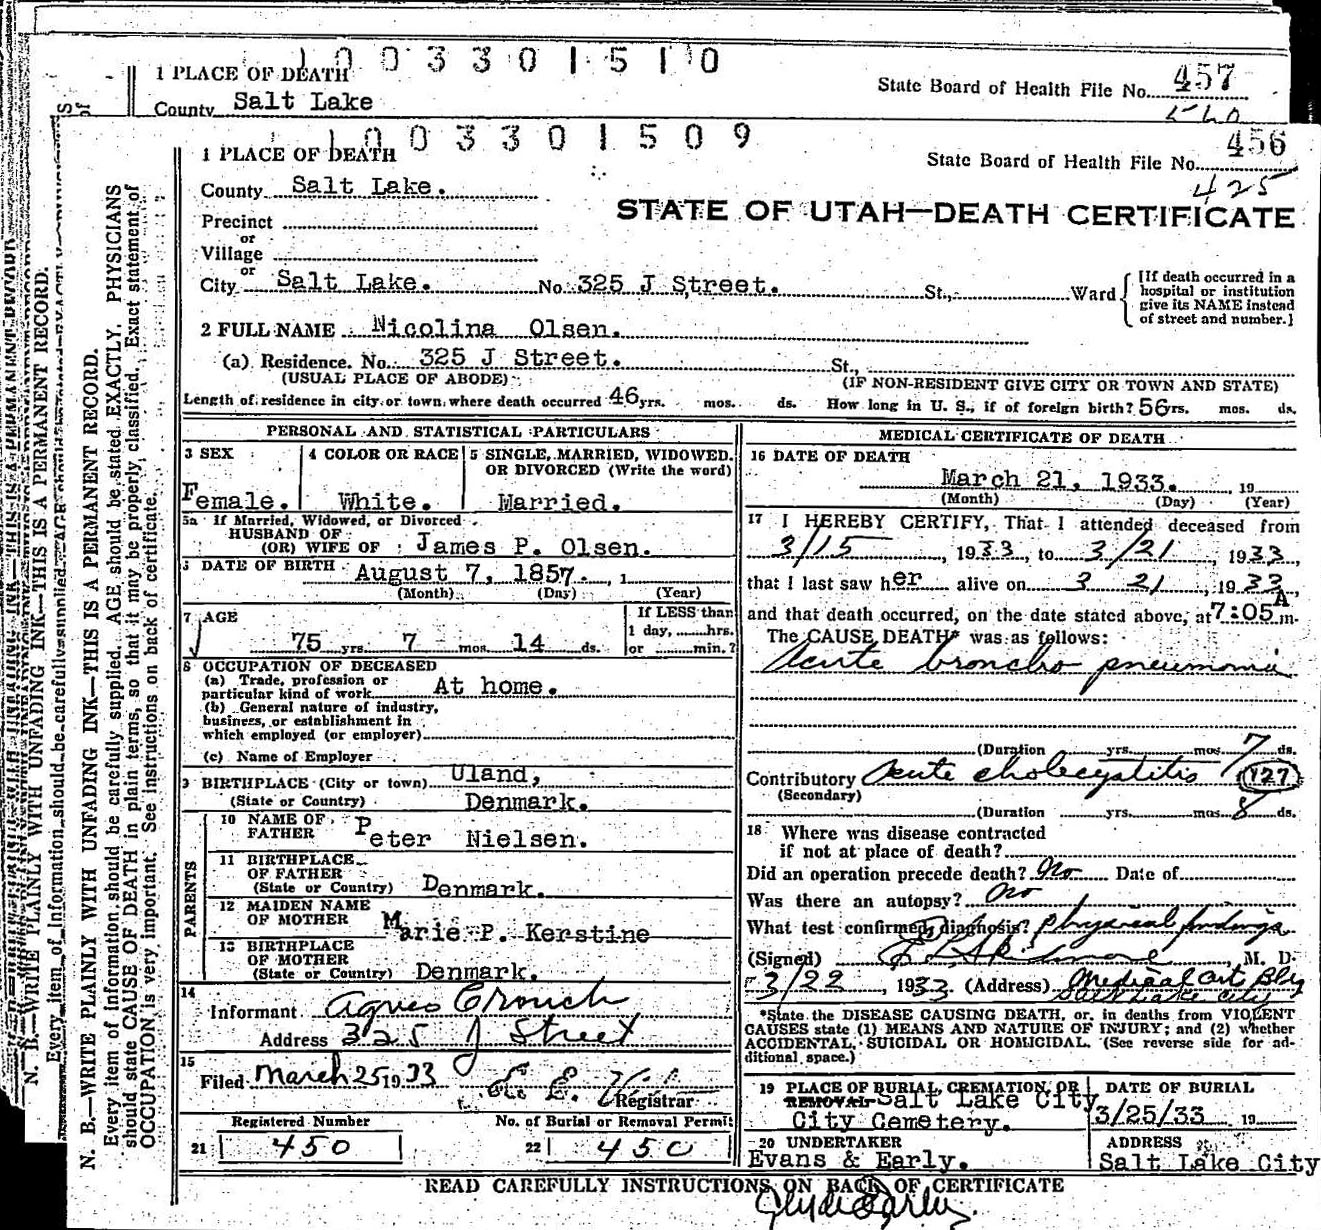 1 0 0 3 3 0 1 5 1 0
1 PLACE OF DEATH
County Salt Lake
State Board of Health File No. 457
540
1 0 0 3 3 0 1 5 0 9
1 PLACE OF DEATH
State Board of Health File No. 456
425
County Salt Lake.
STATE OF UTAH—DEATH CERTIFICATE
Precinct
or
Village
or
City Salt Lake. No. 325 J Street. St., Ward
[If death occurred in a hospital or institution give its NAME instead of street and number.]
2 FULL NAME Nicolina Olsen.
(a) Residence. No. 325 J Street. St.,
(USUAL PLACE OF ABODE) (IF NON-RESIDENT GIVE CITY OR TOWN AND STATE)
Length of residence in city or town where death occurred 46 yrs. mos. ds. How long in U. S., if of foreign birth? 56 rs. mos. ds.
PERSONAL AND STATISTICAL PARTICULARS
3 SEX
Female.
4 COLOR OR RACE
White.
5 SINGLE, MARRIED, WIDOWED. OR DIVORCED (Write the word)
Married.
5a If Married, Widowed, or Divorced
HUSBAND OF
(OR) WIFE OF James P. Olsen.
DATE OF BIRTH August 7, 1857. , 1
(Month) (Day) (Year)
7 AGE
75 yrs. 7 mos. 14 ds.
If LESS than
1 day, hrs.
or min.?
8 OCCUPATION OF DECEASED
(a) Trade, profession or
particular kind of work At home.
(b) General nature of industry,
business, or establishment in
which employed (or employer)
(c) Name of Employer
9 BIRTHPLACE (City or town) Uland,
(State or Country) Denmark.
PARENTS
10 NAME OF
FATHER Peter Nielsen.
11 BIRTHPLACE
OF FATHER
(State or Country) Denmark.
12 MAIDEN NAME
OF MOTHER Marie P. Kerstine
13 BIRTHPLACE
OF MOTHER
(State or Country) Denmark.
14
Informant Agnes Crouch
Address 325 J Street
15
Filed March 25 1933
Registrar
Registered Number
21 450
No. of Burial or Removal Permit
22 450
MEDICAL CERTIFICATE OF DEATH
16 DATE OF DEATH
March 21, 1933. , 19
(Month) (Day) (Year)
17 I HEREBY CERTIFY, That I attended deceased from
3/15 , 1933, to 3/21 , 1933,
that I last saw her alive on 3 21 , 1933,
and that death occurred, on the date stated above, at 7:05 A m.
The CAUSE DEATH* was as follows:
Acute broncho pneumonia
(Duration yrs. mos. 7 ds.
Contributory Acute cholecystitis 127
(Secondary)
(Duration yrs. mos. 8 ds.
18 Where was disease contracted
if not at place of death?
Did an operation precede death? No Date of
Was there an autopsy? No
What test confirmed diagnosis? Physical findings
(Signed) , M. D.
3/22 , 1933 (Address) Medical Art Blg
Salt Lake City
*State the DISEASE CAUSING DEATH, or, in deaths from VIOLENT
CAUSES state (1) MEANS AND NATURE OF INJURY; and (2) whether
ACCIDENTAL, SUICIDAL OR HOMICIDAL. (See reverse side for ad-
ditional space.)
19 PLACE OF BURIAL, CREMATION, OR
REMOVAL Salt Lake City
City Cemetery.
DATE OF BURIAL
3/25/33 19
20 UNDERTAKER
Evans & Early.
ADDRESS
Salt Lake City
READ CAREFULLY INSTRUCTIONS ON BACK OF CERTIFICATE
N. B.—WRITE PLAINLY WITH UNFADING INK—THIS IS A PERMANENT RECORD.
Every item of information should be carefully supplied. AGE should be stated EXACTLY. PHYSICIANS
should state CAUSE OF DEATH in plain terms, so that it may be properly classified. Exact statement of
OCCUPATION is very important. See instructions on back of certificate.
N. B.—WRITE PLAINLY WITH UNFADING INK—THIS IS A PERMANENT RECORD.
Every item of information should be carefully supplied. AGE